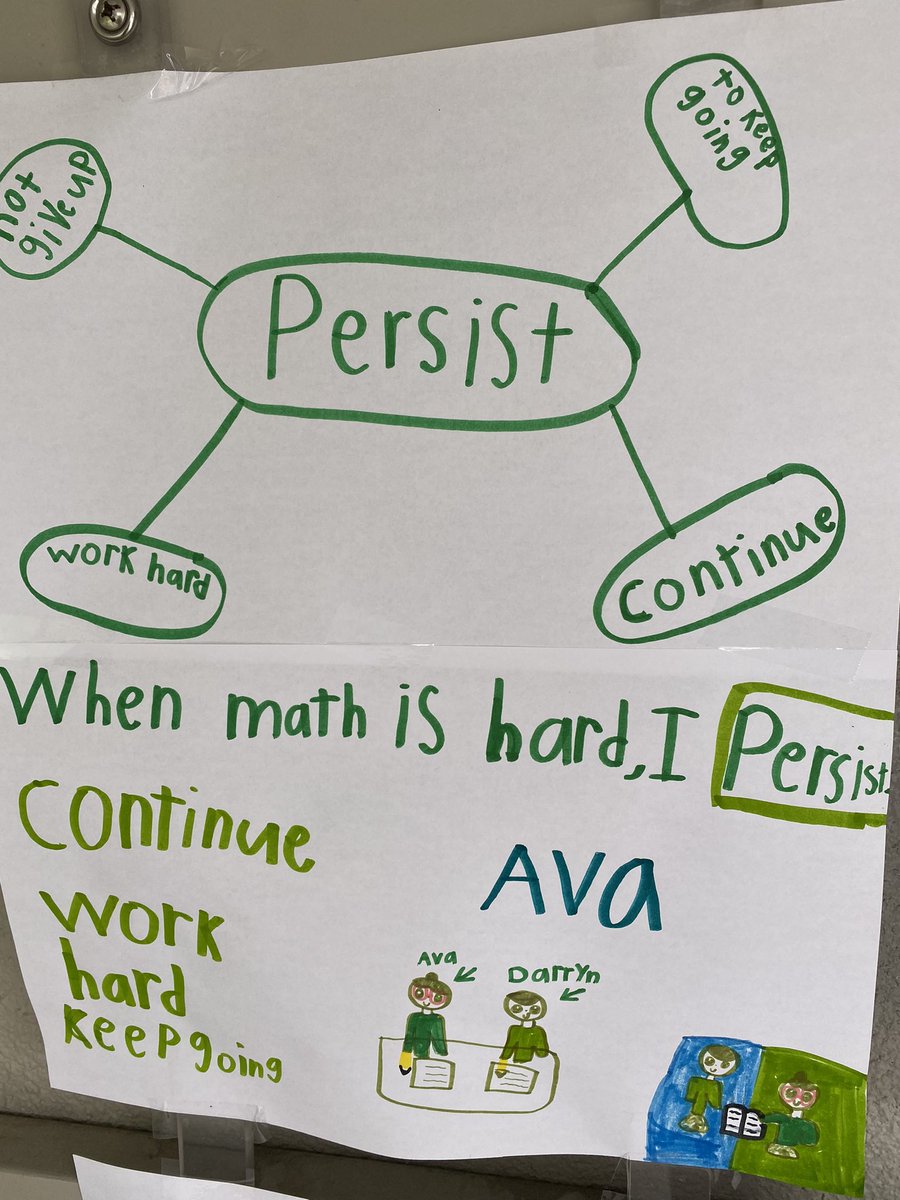 not
give up
to keep
going
Persist
work hard
continue
When math is hard, I Persist.
Continue
Ava
work
hard
keep going
Ava
Darryn